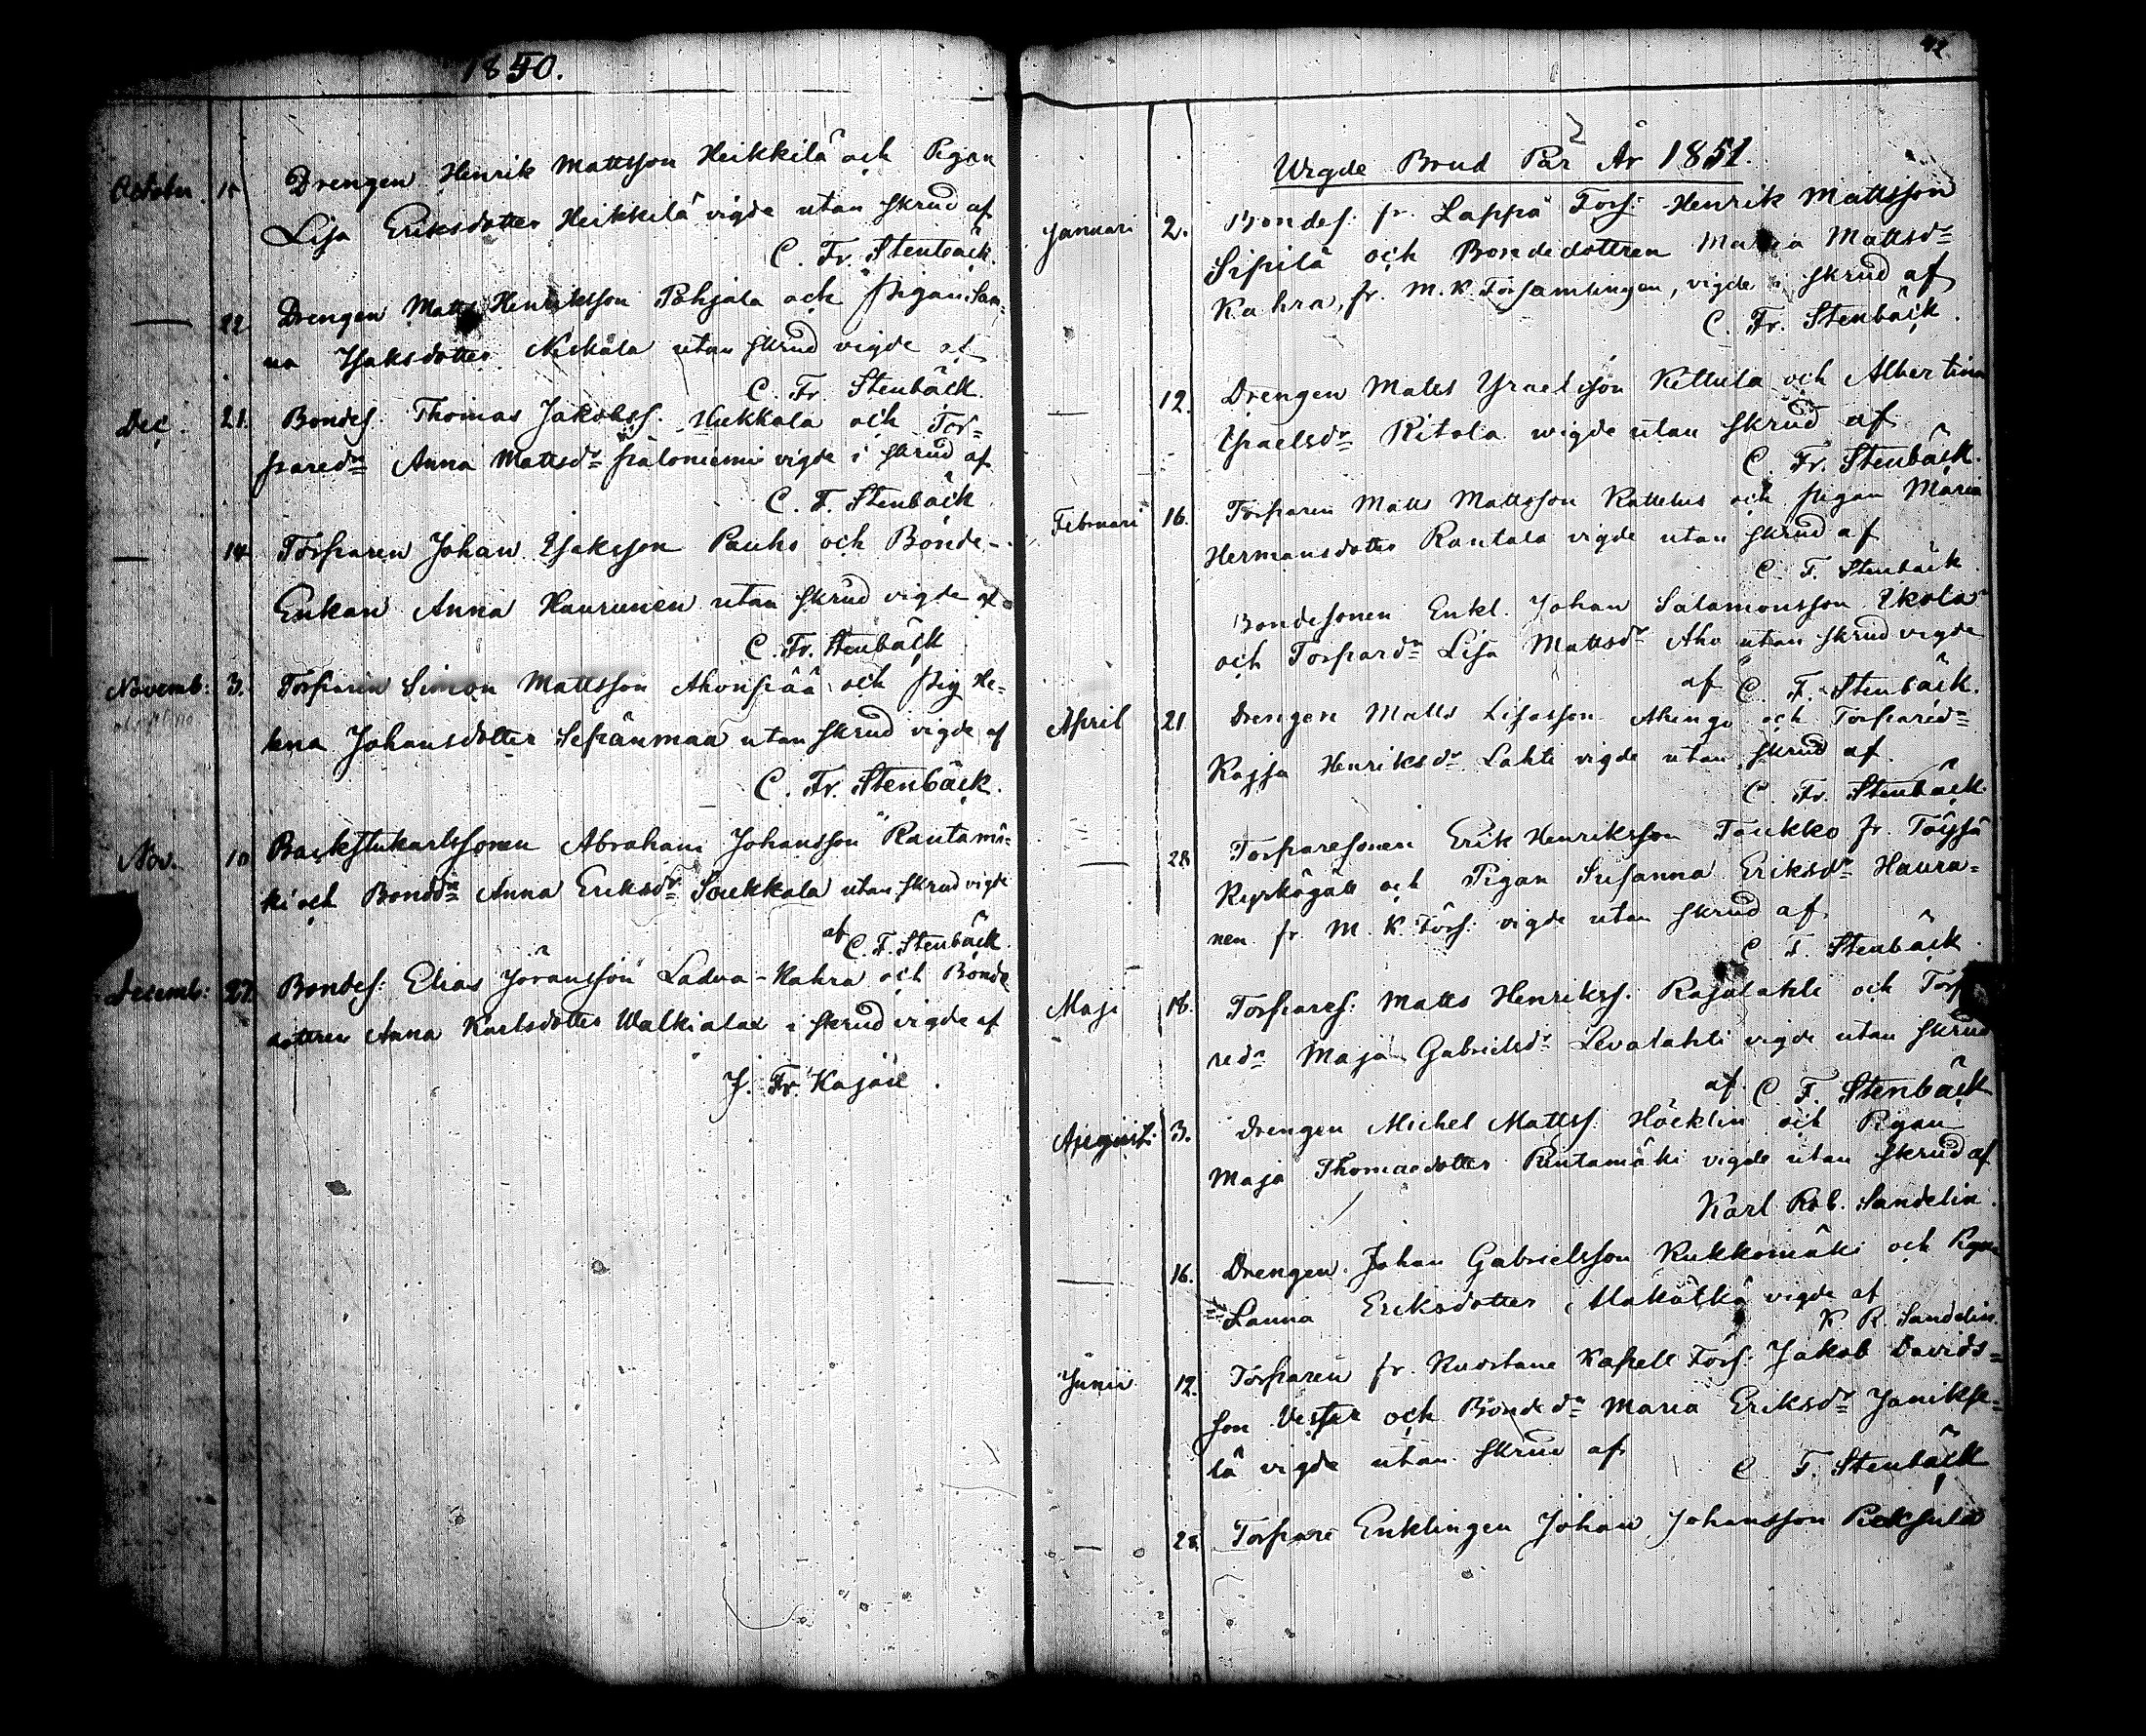 1850.
October. 15 Drengen Henrik Mattsson Heikkilä och Pigan
Lisa Eriksdotter Heikkilä vigde utan skrud af
C. Fr. Stenbäck.
— 22 Drengen Matts Henriksson Pohjala och Pigan San-
na Isaksdotter Niskala utan skrud vigde af
C. Fr. Stenbäck.
Dec. 21. Bondes. Thomas Jakobss. och Tor-
pared:r Anna Mattsd:r vigde i skrud af
C. F. Stenbäck
— 14 Torparen Johan Isaksson Pauhi och Bonde-
Enkan Anna Haurunen utan skrud vigde af
C. Fr. Stenbäck
Novemb: 3. Torparen Simon Mattsson Ahonpää och Pig He-
lena Johansdotter Sepänmaa utan skrud vigde af
C. Fr. Stenbäck.
Nov. 10 Backstukarlssonen Abraham Johansson Rantamä-
ki och Bondd:r Anna Eriksd:r Soukkala utan skrud vigde
af C. F. Stenbäck.
Decemb: 27. Bondes: Elias Jöransson Ladva-Kahra och Bonde
dottren Anna Karlsdotter Walkiala i skrud vigde af
J. Fr. Kajan.
42
Wigde Brud Par År 1851.
Januari 2. Bondes. fr. Lappo Förs: Henrik Mattsson
Sipilä och Bondedottren Maria Mattsd:r
Kahra, fr. M. K. Församlingen, vigde i skrud af
C. Fr. Stenbäck.
— 12. Drengen Matts Ysraelsson Kettula och Albertina
Ysraelsd:r Ritola wigde utan skrud af
C. Fr. Stenbäck.
Februari 16. Torparen Matts Mattsson Kattelus och Pigan Maria
Hermansdotter Rantala vigde utan skrud af
C. F. Stenbäck.
Bondesonen Enkl. Johan Salamonsson Ekola
och Torpard:r Lisa Mattsd:r Aho utan skrud vigde
af C. F. Stenbäck.
April 21 Drengen Matts Lisasson och Torpared:r
Kajsa Henriksd:r Lahti vigde utan skrud af
C. Fr. Stenbäck.
— 28 Torparesonen Erik Henriksson Toukko fr. Töysä
och Pigan Susanna Eriksd:r Haura-
nen fr. M. K. Förs: vigde utan skrud af
C. F. Stenbäck.
Maji 18. Torpares: Matts Henrikss. Rajalahti och Torpa
red:r Maja Gabrielsd:r Levalahti vigde utan skrud
af C. F. Stenbäck
Augusti: 3. Drengen Michel Mattss. Höcklin och Pigan
Maja Thomasdotter Rentamäki vigde utan skrud af
Karl Rob. Sandelin.
— 16. Drengen Johan Gabrielsson Kukkomäki och Pigan
Sanna Eriksdotter vigde af
K R. Sandelin.
Junii 12. Torparen fr. Kuortane Kapell Förs: Jakob Davids-
son och Bonded:r Maria Eriksd:r Janikse-
lä vigde utan skrud af
C. F. Stenbäck
— 28. Torpare Enklingen Johan Johansson